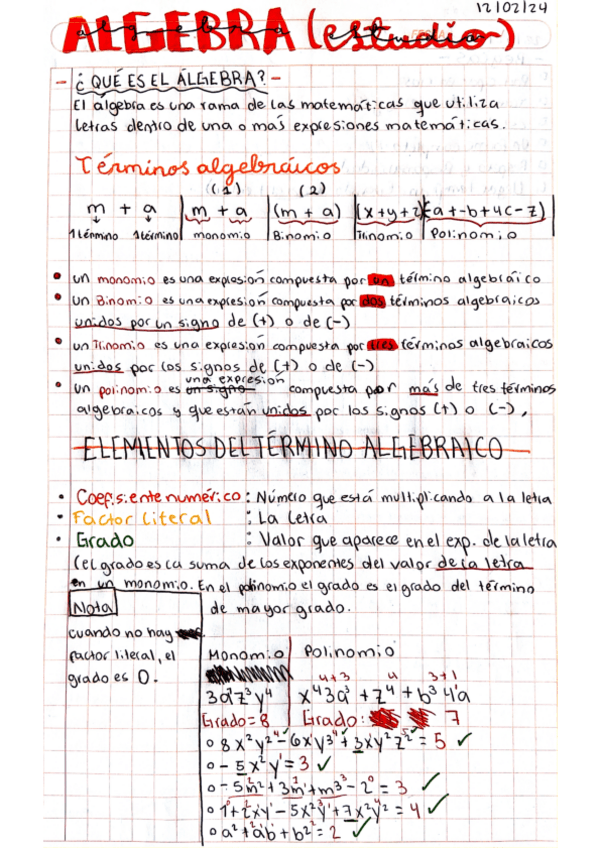 12/02/24
ALGEBRA (estudio)
algebra
- ¿QUÉ ES EL ÁLGEBRA? -
El álgebra es una rama de las matemáticas que utiliza
letras dentro de una o más expresiones matemáticas.
Términos algebráicos
(1) (2)
m + a | m + a | (m + a) | (x+y+z) | (a+-b+4c-z)
1 término 1 término | monomio | Binomio | Trinomio | Polinomio
• un monomio es una expresión compuesta por un término algebráico
• un Binomio es una expresión compuesta por dos términos algebraicos
unidos por un signo de (+) o de (-)
• un Trinomio es una expresión compuesta por tres términos algebraicos
unidos por los signos de (+) o de (-)
• un polinomio es una expresión compuesta por más de tres términos
algebraicos y que están unidos por los signos (+) o (-),
ELEMENTOS DEL TÉRMINO ALGEBRAICO
• Coefisiente numérico: Número que está multiplicando a la letra
• Factor literal : La letra
• Grado : Valor que aparece en el exp. de la letra
(el grado es la suma de los exponentes del valor de la letra
en un monomio. En el polinomio el grado es el grado del término
de mayor grado.
Nota
cuando no hay
factor literal, el
grado es 0.
Monomio | Polinomio
4+3 4 3+1
3a¹z³y⁴ | x⁴3a³ + z⁴ + b³4¹a
Grado = 8 | Grado: 7
o 8x²y² - 6x¹y³ + 3xy²z² = 5 ✓
o - 5x²y¹ = 3 ✓
o - 5m² + 3m¹ + m³ - 2⁰ = 3 ✓
o 1 + 2x¹y¹ - 5x²y¹ + 7x²y² = 4 ✓
o a² + a¹b¹ + b² = 2 ✓